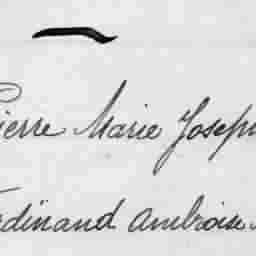 Pierre Marie Joseph
Ferdinand Ambroise